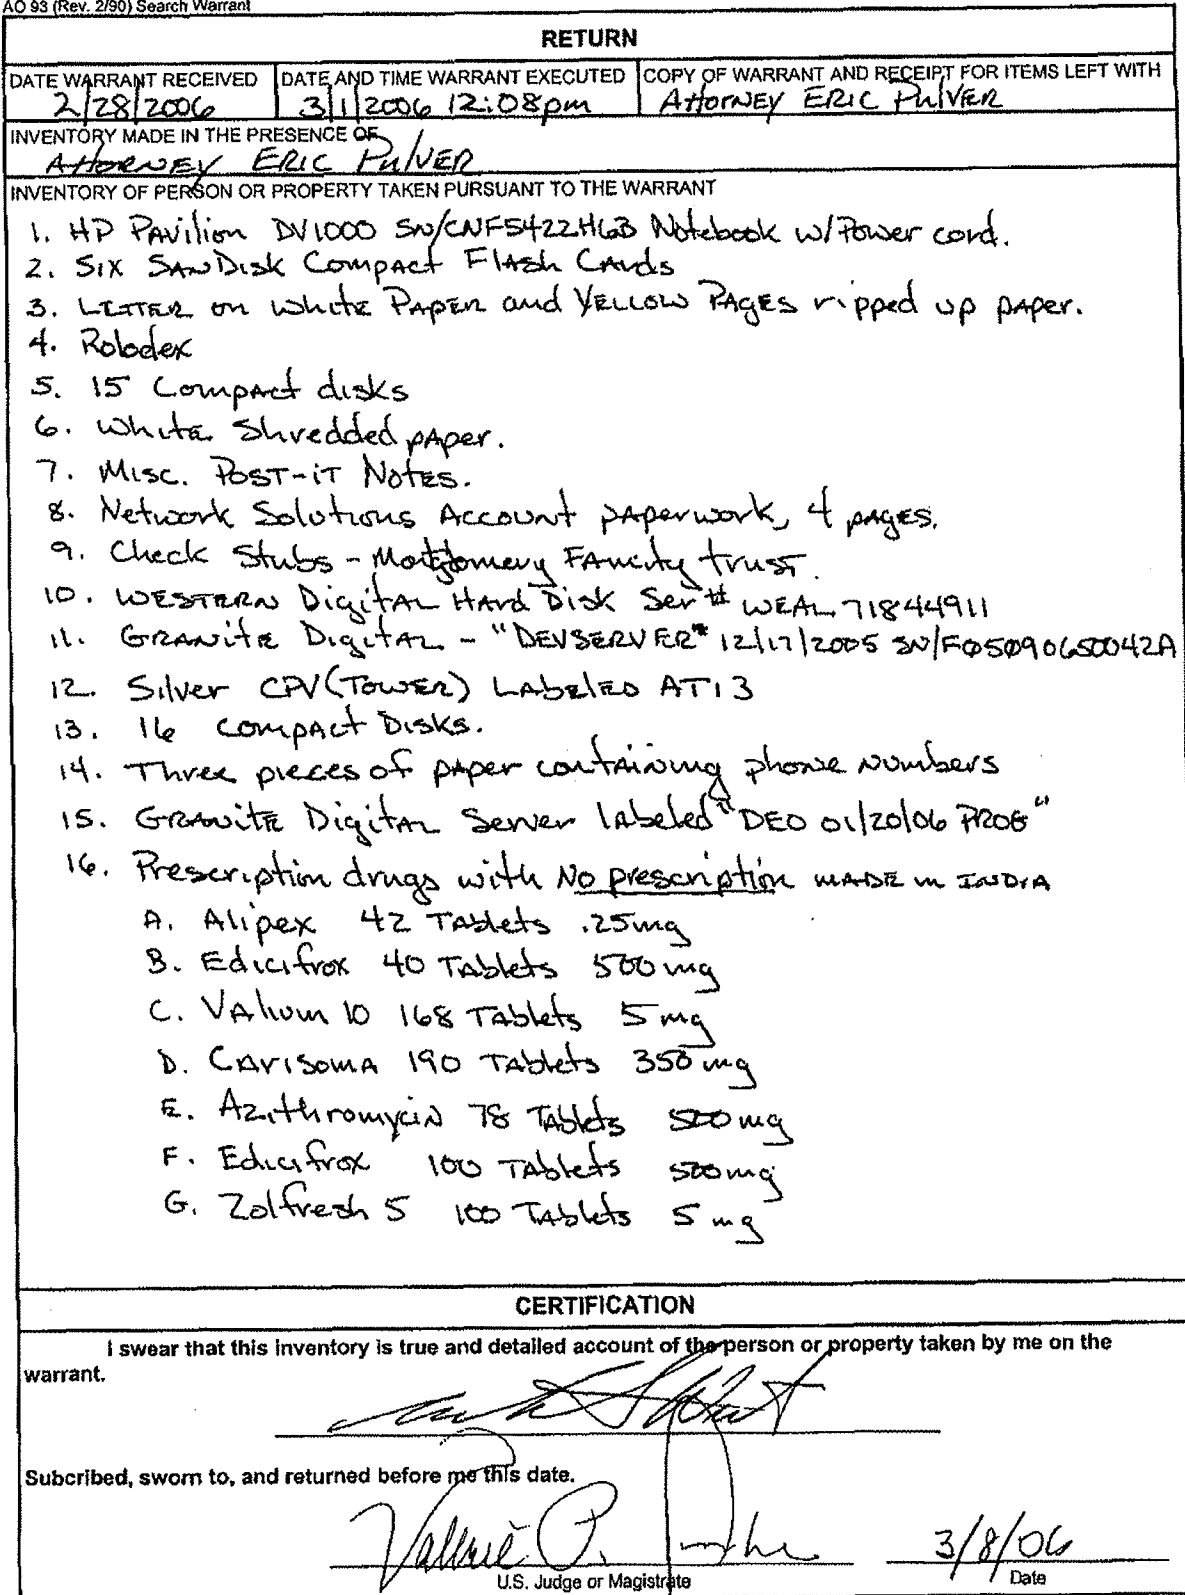 AO 93 (Rev. 2/90) Search Warrant
RETURN
DATE WARRANT RECEIVED
2/28/2006
DATE AND TIME WARRANT EXECUTED
3/1/2006 12:08pm
COPY OF WARRANT AND RECEIPT FOR ITEMS LEFT WITH
Attorney ERIC PulVER
INVENTORY MADE IN THE PRESENCE OF
AttORNEY ERIC PulVER
INVENTORY OF PERSON OR PROPERTY TAKEN PURSUANT TO THE WARRANT
1. HP PAVilion DV1000 SN/CNF5422H6B Notebook w/Power cord.
2. SIX SANDisk Compact Flash Cards
3. LETTER on white PAPER and YELLOW PAGES ripped up paper.
4. Rolodex
5. 15 Compact disks
6. White Shredded paper.
7. Misc. POST-iT Notes.
8. Network Solutions Account paperwork, 4 pages.
9. Check Stubs - Montgomery Family trust.
10. WESTERN Digital Hard Disk Ser# WEAL 71844911
11. GRANITE Digital - "DEVSERVER" 12/17/2005 SN/F05090650042A
12. Silver CPU (TOWER) LABELED AT13
13. 16 Compact Disks.
14. Three pieces of paper containing phone numbers
15. GRANITE Digital Server labeled "DEO 01/20/06 PROG"
16. Prescription drugs with No prescription MADE in INDIA
A. Alipex 42 Tablets .25mg
B. Edicifrox 40 Tablets 500mg
C. Valium 10 168 Tablets 5mg
D. CArisomA 190 Tablets 350mg
E. Azithromycin 78 Tablets 500mg
F. Edicifrox 100 Tablets 500mg
G. Zolfresh 5 100 Tablets 5mg
CERTIFICATION
I swear that this inventory is true and detailed account of the person or property taken by me on the
warrant.
Subcribed, sworn to, and returned before me this date.
Valerie P.
3/8/06
U.S. Judge or Magistrate
Date